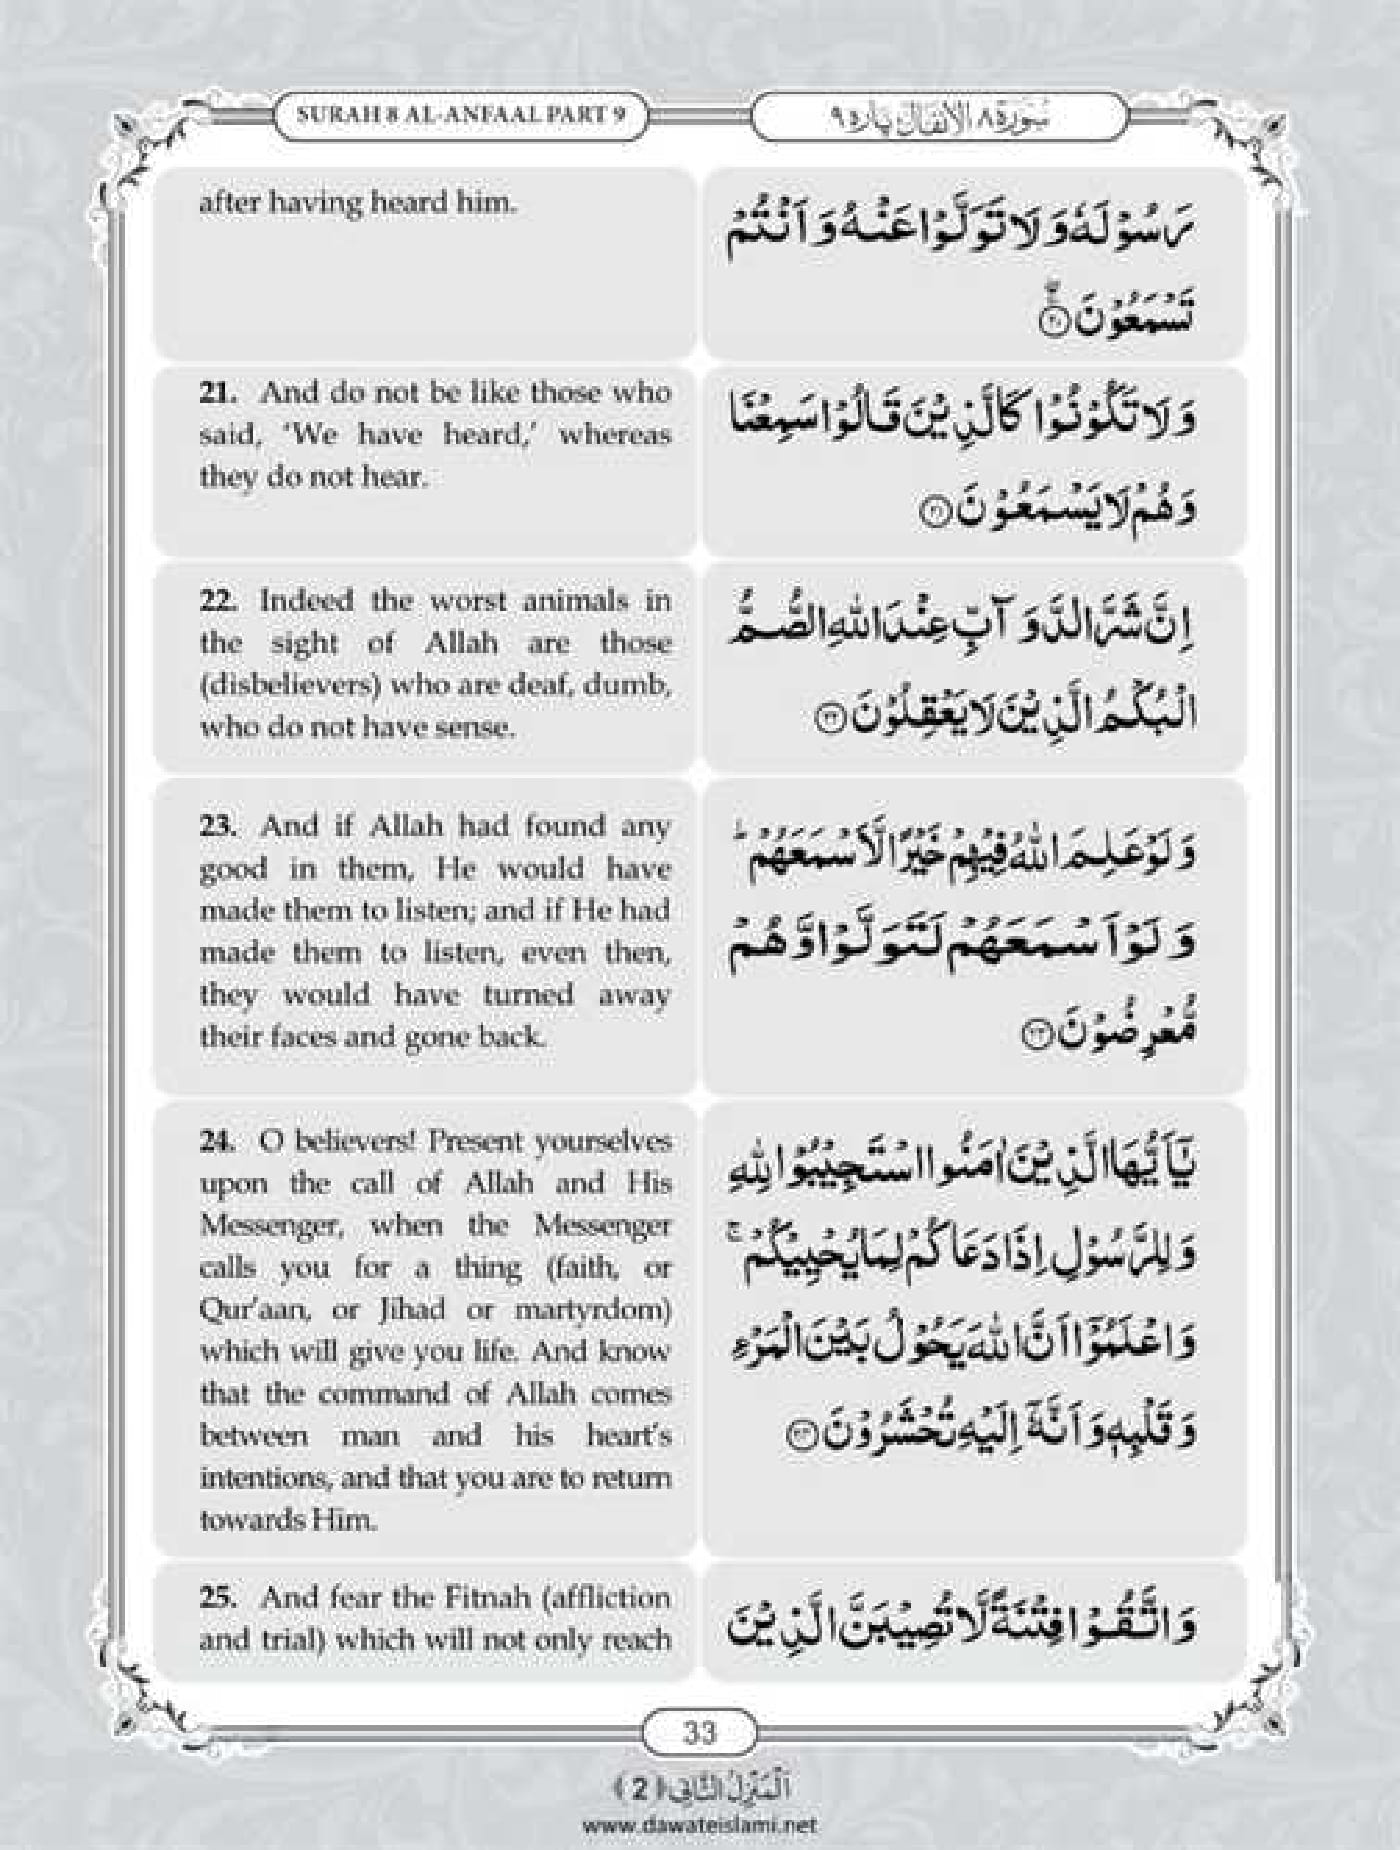 SURAH 8 AL-ANFAAL PART 9
سُورَة ٨ الْاَنْفَال پَارہ ٩
after having heard him.
رَسُوْلَهٗ وَ لَا تَوَلَّوْا عَنْهُ وَ اَنْتُمْ
تَسْمَعُوْنَ ﴿۲۰﴾
21. And do not be like those who
said, ‘We have heard,’ whereas
they do not hear.
وَ لَا تَكُوْنُوْا كَالَّذِیْنَ قَالُوْا سَمِعْنَا
وَ هُمْ لَا یَسْمَعُوْنَ ﴿۲۱﴾
22. Indeed the worst animals in
the sight of Allah are those
(disbelievers) who are deaf, dumb,
who do not have sense.
اِنَّ شَرَّ الدَّوَآبِّ عِنْدَ اللّٰهِ الصُّمُّ
الْبُكْمُ الَّذِیْنَ لَا یَعْقِلُوْنَ ﴿۲۲﴾
23. And if Allah had found any
good in them, He would have
made them to listen; and if He had
made them to listen, even then,
they would have turned away
their faces and gone back.
وَ لَوْ عَلِمَ اللّٰهُ فِیْهِمْ خَیْرًا لَّاَسْمَعَهُمْ ؕ
وَ لَوْ اَسْمَعَهُمْ لَتَوَلَّوْا وَّ هُمْ
مُّعْرِضُوْنَ ﴿۲۳﴾
24. O believers! Present yourselves
upon the call of Allah and His
Messenger, when the Messenger
calls you for a thing (faith, or
Qur’aan, or Jihad or martyrdom)
which will give you life. And know
that the command of Allah comes
between man and his heart’s
intentions, and that you are to return
towards Him.
یٰۤاَیُّهَا الَّذِیْنَ اٰمَنُوا اسْتَجِیْبُوْا لِلّٰهِ
وَ لِلرَّسُوْلِ اِذَا دَعَاكُمْ لِمَا یُحْیِیْكُمْ ۚ
وَ اعْلَمُوْۤا اَنَّ اللّٰهَ یَحُوْلُ بَیْنَ الْمَرْءِ
وَ قَلْبِهٖ وَ اَنَّهٗۤ اِلَیْهِ تُحْشَرُوْنَ ﴿۲۴﴾
25. And fear the Fitnah (affliction
and trial) which will not only reach
وَ اتَّقُوْا فِتْنَةً لَّا تُصِیْبَنَّ الَّذِیْنَ
33
اَلْمَنْزِلُ الثَّانِی ﴿2﴾
www.dawateislami.net